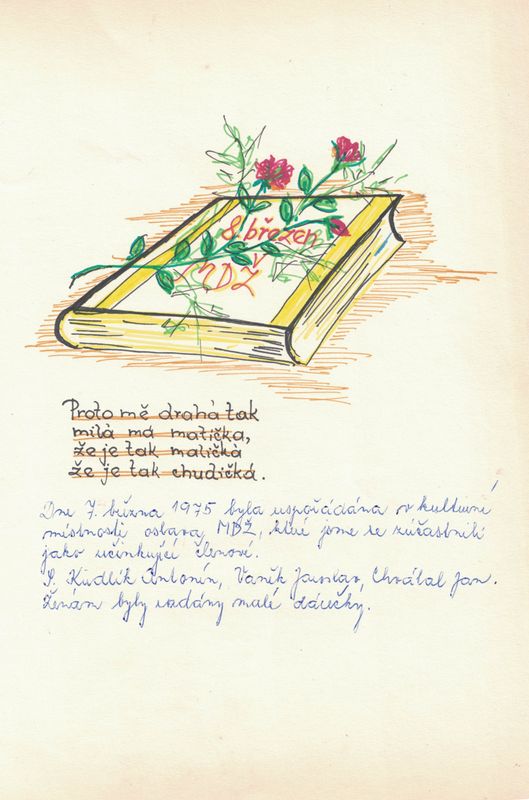 8 březen
MDŽ
Proto mě drahá tak
milá má matička,
že je tak maličká
že je tak chudičká.
Dne 7. března 1975 byla uspořádána v kulturní
místnosti oslava MDŽ, které jsme se zúčastnili
jako účinkující členové.
S. Kudlík Antonín, Vaněk Jaroslav, Chvátal Jan.
Ženám byly rozdány malé dárečky.